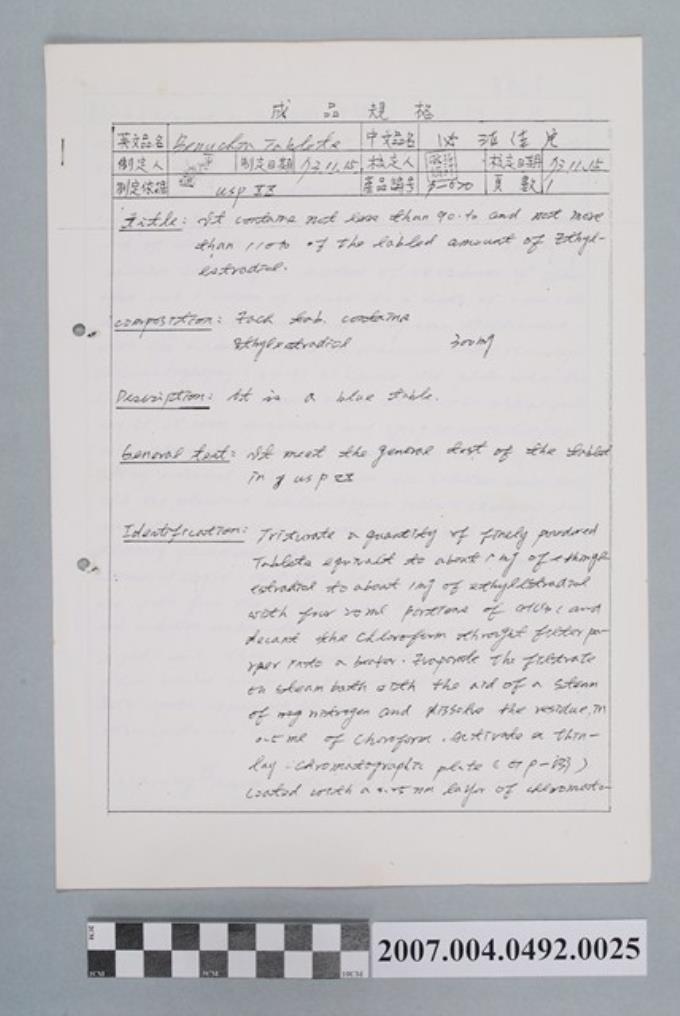 成品規格
英文品名 Tablets 中文品名 必 佳 片
制定人 制定日期 72.11.15 核定人 核定日期 72.11.15
制定依據 usp XX 產品編號 頁數 1
Title: It contains not less than 90% and not more
than 110% of the labled amount of Ethyl-
estradiol.
Composition: Each tab. contains
Ethylestradiol 300mg
Description: It is a blue table.
General test: It meet the general test of the tablet
in usp XX
Identification: Triturate a quantity of finely powdered
Tablets equivalt to about 1mg of ethinyl
estradiol to about 1mg of ethylestradiol
with four 20ml portions of and
decant the Chloroform throught filter pa-
per into a . Evaporate the filtrate
on steam bath with the aid of a steam
of nitrogen and dissolve the residue in
0.5 ml of Choroform. Activate a thin-
lay-chromatographic plate
Coated with a 0.25 mm layer of chromato-
2007.004.0492.0025
0CM
5CM
10CM